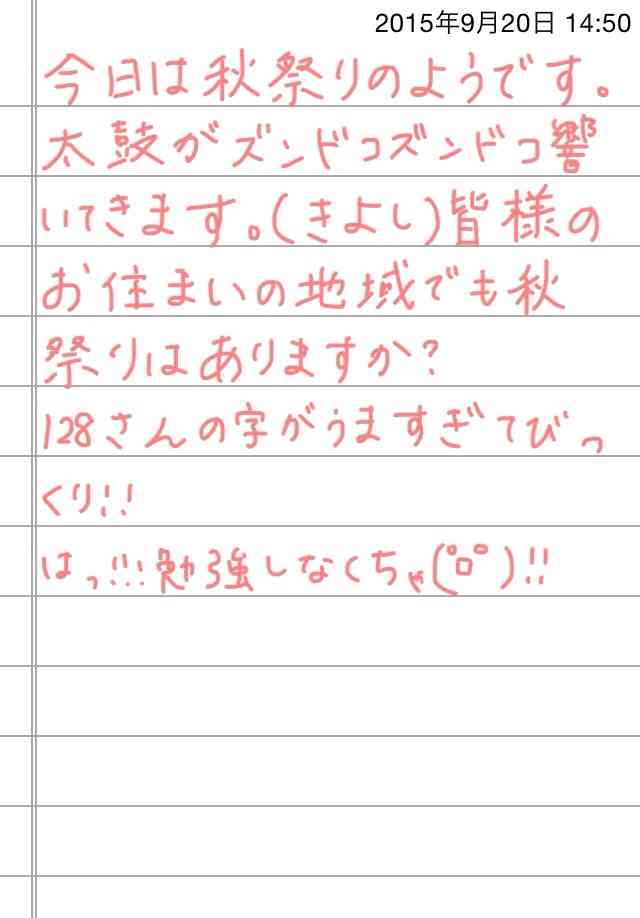 2015年9月20日 14:50
今日は秋祭りのようです。
太鼓がズンドコズンドコ響
いてきます。(きよし)皆様の
お住まいの地域でも秋
祭りはありますか?
128さんの字がうますぎてびっ
くり!!
はっ!!!勉強しなくちゃ(ﾟロﾟ)!!